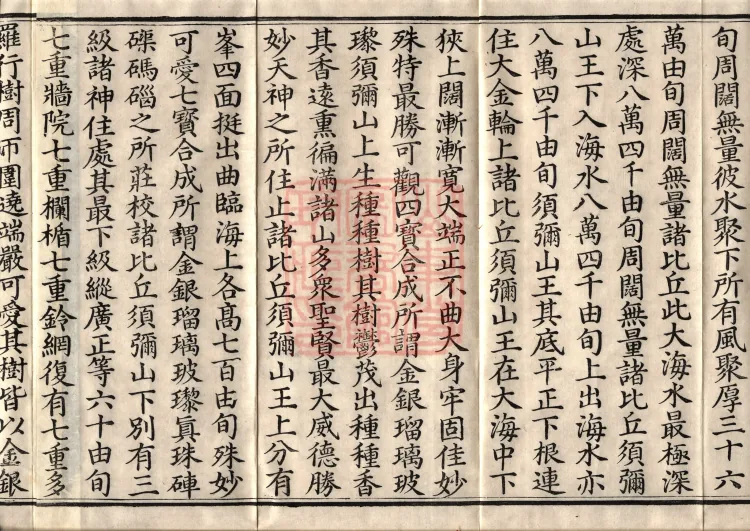 旬周闊無量彼水聚下所有風聚厚三十六
萬由旬周闊無量諸比丘此大海水最極深
處深八萬四千由旬周闊無量諸比丘須彌
山王下入海水八萬四千由旬上出海水亦
八萬四千由旬須彌山王其底平正下根連
住大金輪上諸比丘須彌山王在大海中下
狹上闊漸漸寬大端正不曲大身牢固佳妙
殊特最勝可觀四寶合成所謂金銀瑠璃玻
瓈須彌山上生種種樹其樹鬱茂出種種香
其香遠熏徧滿諸山多衆聖賢最大威德勝
妙天神之所住止諸比丘須彌山王上分有
峯四面挺出曲臨海上各高七百由旬殊妙
可愛七寶合成所謂金銀瑠璃玻瓈眞珠硨
磲碼碯之所莊校諸比丘須彌山下別有三
級諸神住處其最下級縱廣正等六十由旬
七重牆院七重欄楯七重鈴網復有七重多
羅行樹周帀圍遶端嚴可愛其樹皆以金銀